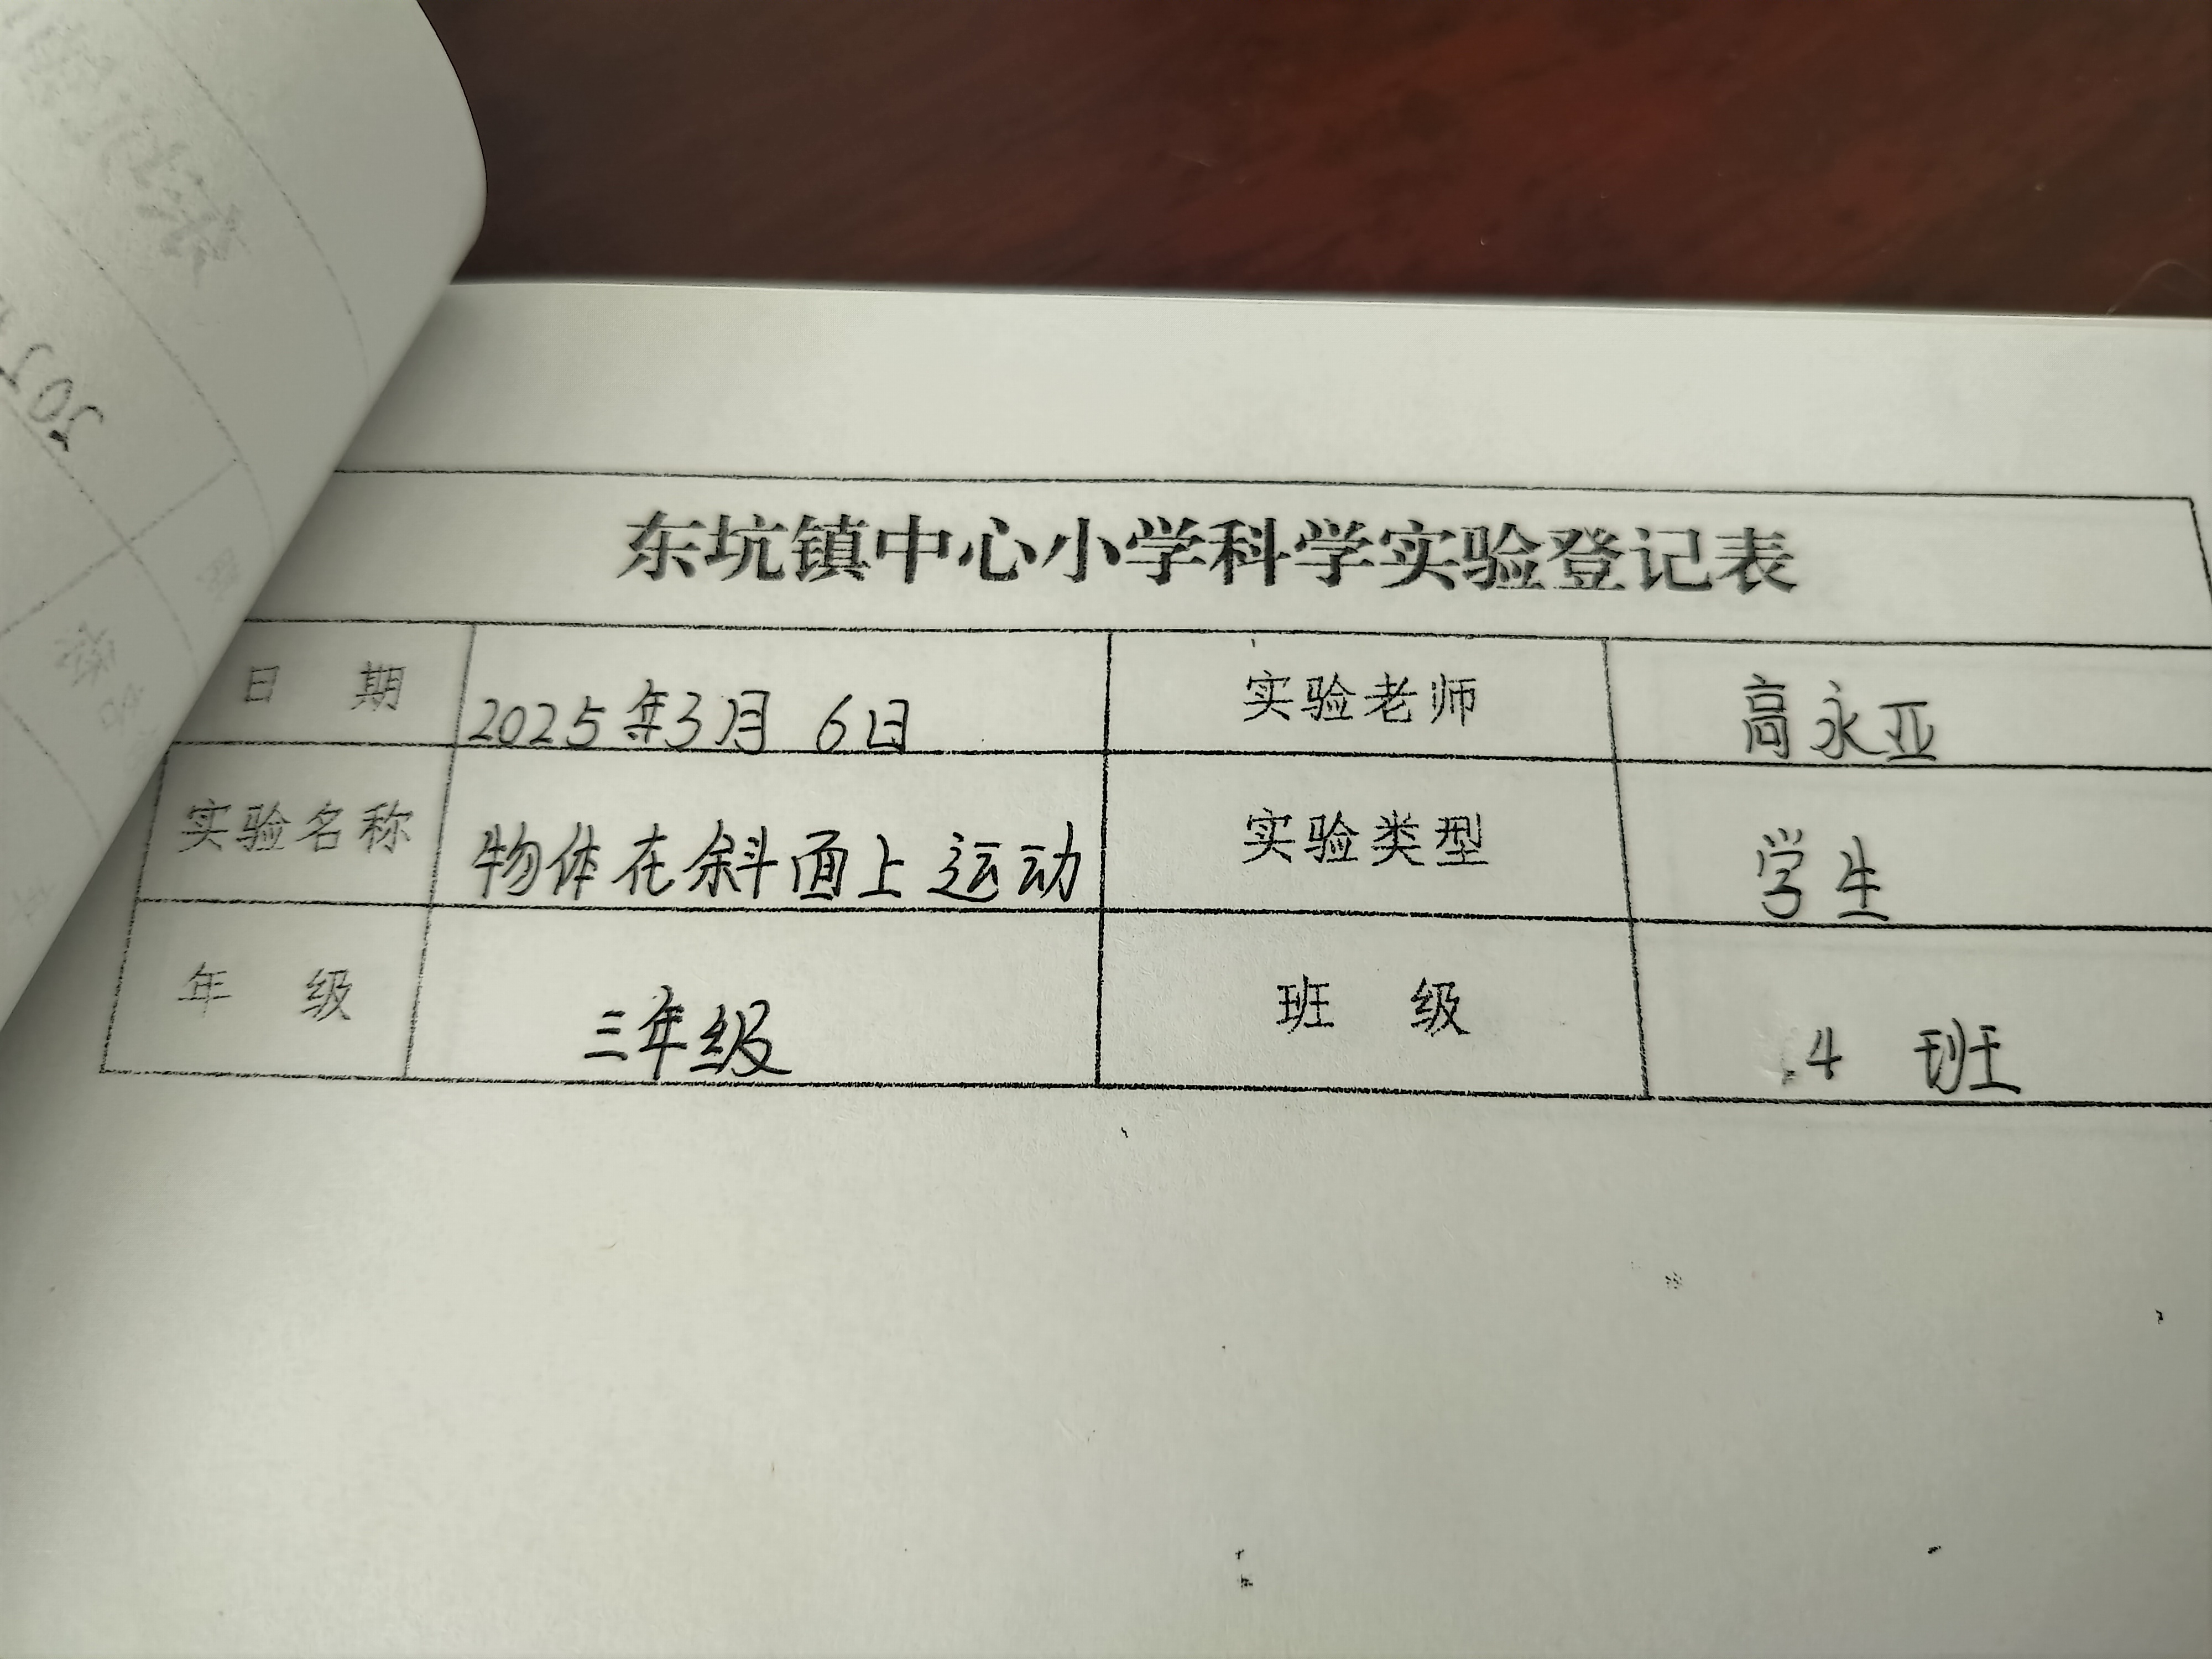 东坑镇中心小学科学实验登记表
日 期 2025年3月 6日 实验老师 高永亚
实验名称 物体在斜面上运动 实验类型 学生
年 级 三年级 班 级 4 班
202